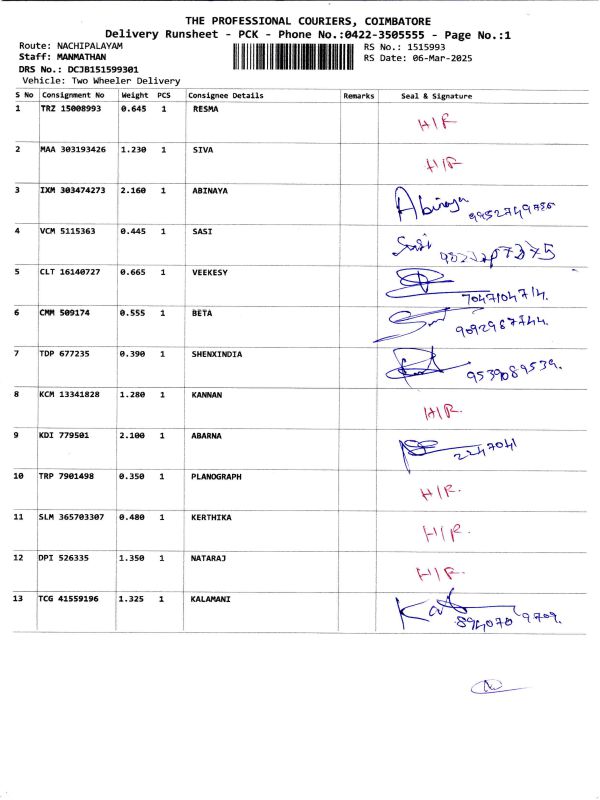 THE PROFESSIONAL COURIERS, COIMBATORE
Delivery Runsheet - PCK - Phone No.:0422-3505555 - Page No.:1
Route: NACHIPALAYAM RS No.: 1515993
Staff: MANMATHAN RS Date: 06-Mar-2025
DRS No.: DCJB151599301
Vehicle: Two Wheeler Delivery
S No Consignment No Weight PCS Consignee Details Remarks Seal & Signature
1 TRZ 15008993 0.645 1 RESMA H/R
2 MAA 303193426 1.230 1 SIVA H/R
3 IXM 303474273 2.160 1 ABINAYA Abinaya
4 VCM 5115363 0.445 1 SASI Sasi
5 CLT 16140727 0.665 1 VEEKESY 7047104714.
6 CMM 509174 0.555 1 BETA 9092987744.
7 TDP 677235 0.390 1 SHENXINDIA 9539089539.
8 KCM 13341828 1.280 1 KANNAN H/R.
9 KDI 779501 2.100 1 ABARNA 2247041
10 TRP 7901498 0.350 1 PLANOGRAPH H/R.
11 SLM 365703307 0.480 1 KERTHIKA H/R.
12 DPI 526335 1.350 1 NATARAJ H/R.
13 TCG 41559196 1.325 1 KALAMANI 894070 9709.